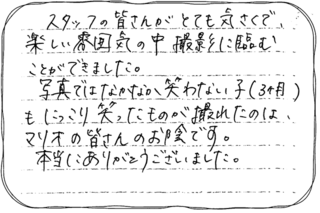 スタッフの皆さんがとても気さくで、
楽しい雰囲気の中撮影に臨む
ことができました。
写真ではなかなか笑わない子(3ヶ月)
もにっこり笑ったものが撮れたのは、
マリオの皆さんのお陰です。
本当にありがとうございました。